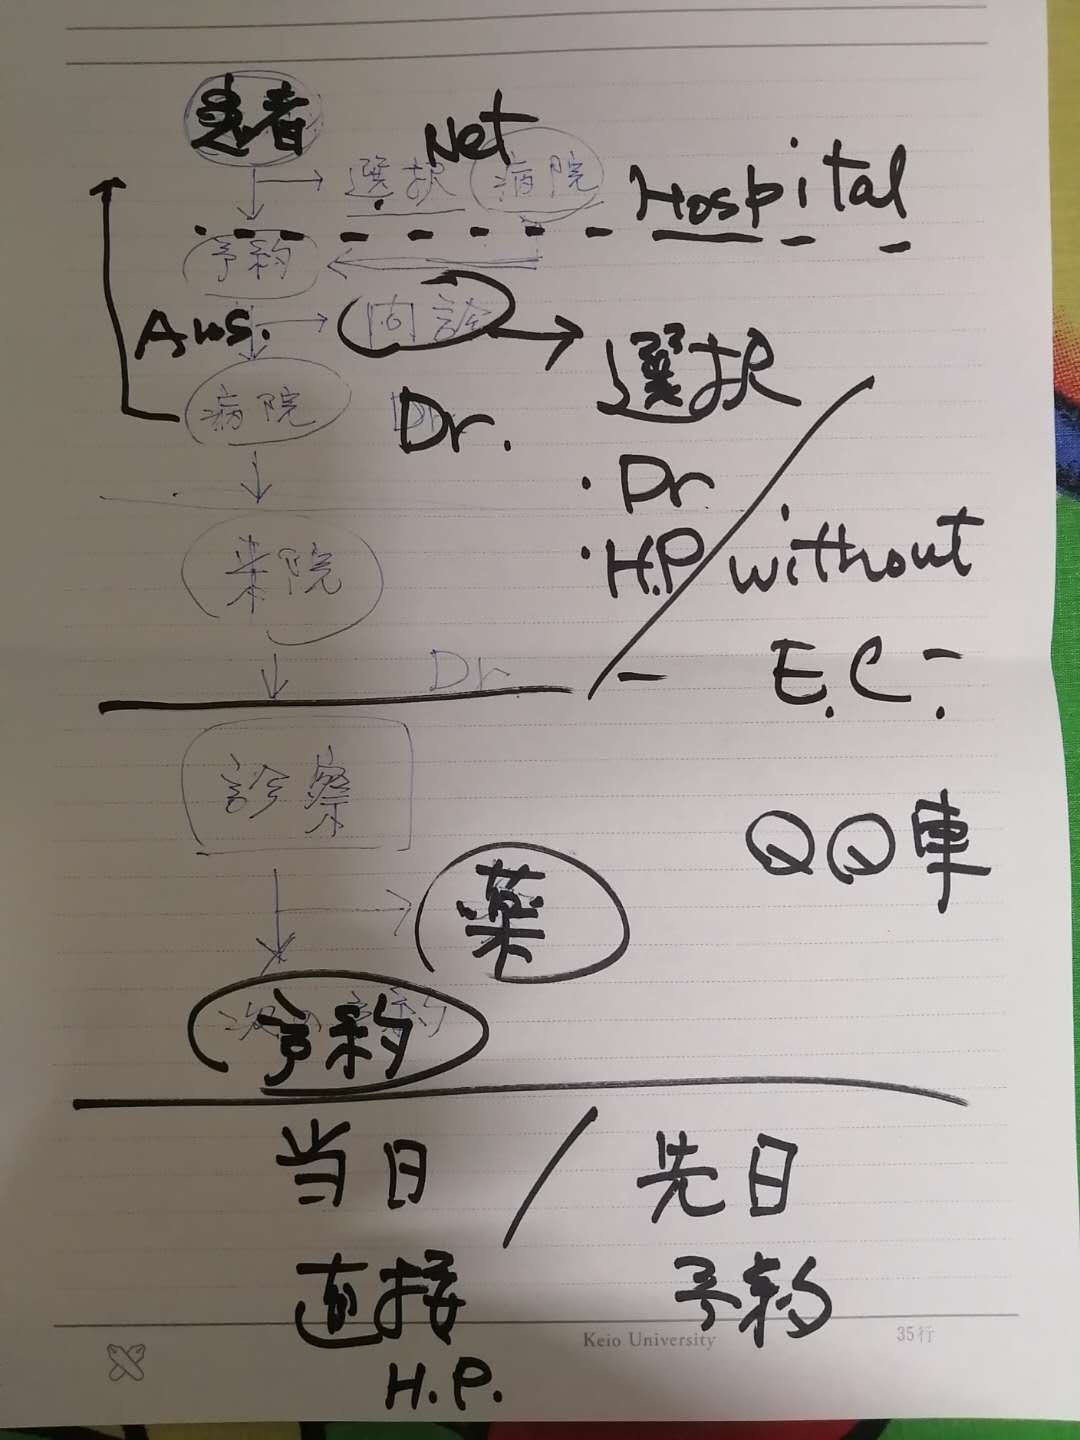 患者
Net
選択 病院
Hospital
予約
Ans.
問診
選択
病院
Dr.
・Dr
・H.P
without
来院
E.C.
Dr
診察
QQ車
薬
予約
当日 / 先日
直接 予約
Keio University
35行
H.P.